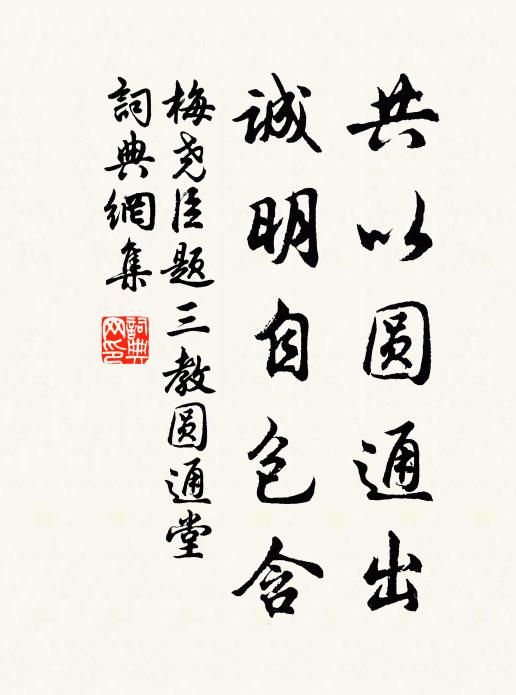 共以圆通出
诚明自包含
梅尧臣题三教圆通堂
詞典網集
詞典网印